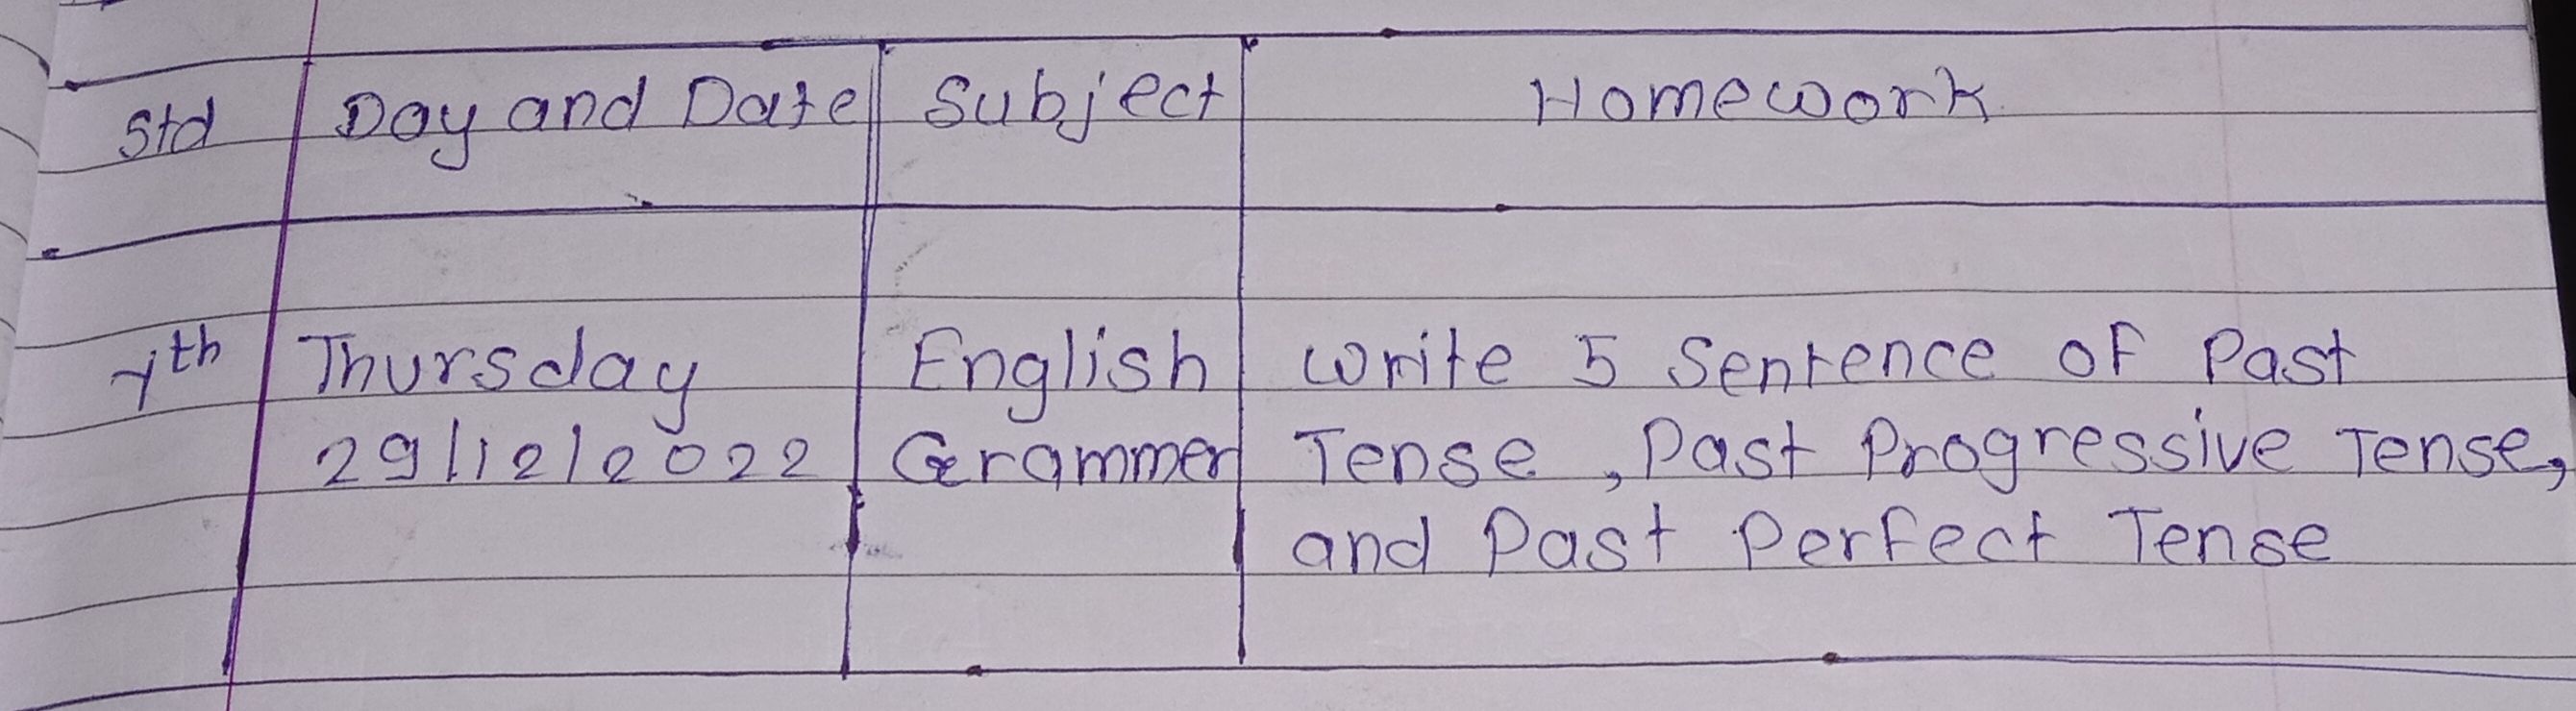 Std Day and Date Subject Homework
7th Thursday English Write 5 Sentence of Past
29/12/2022 Grammer Tense, Past Progressive Tense,
and Past Perfect Tense